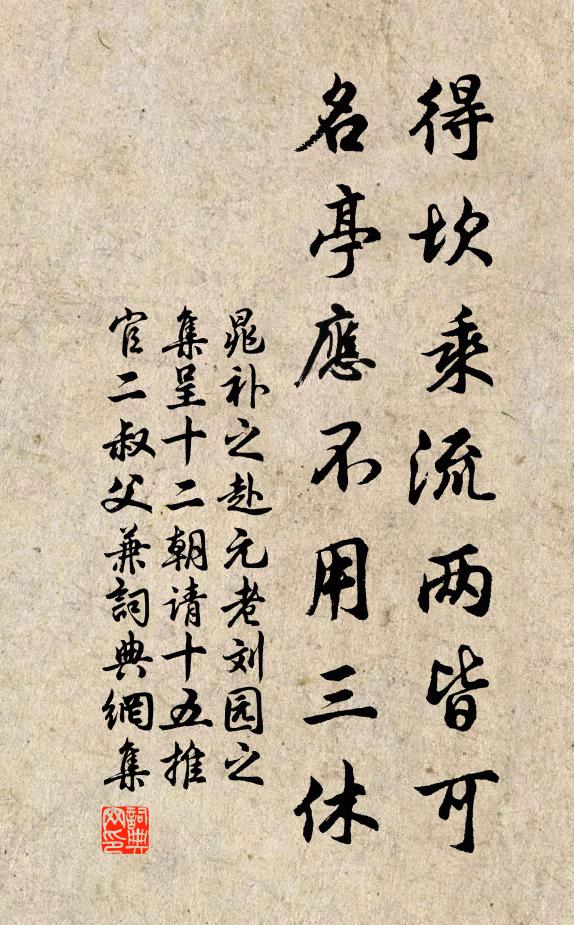 得坎乘流两皆可
名亭應不用三休
晁补之赴元老刘园之
集呈十二朝请十五推
官二叔父兼詞典網集
詞典网印